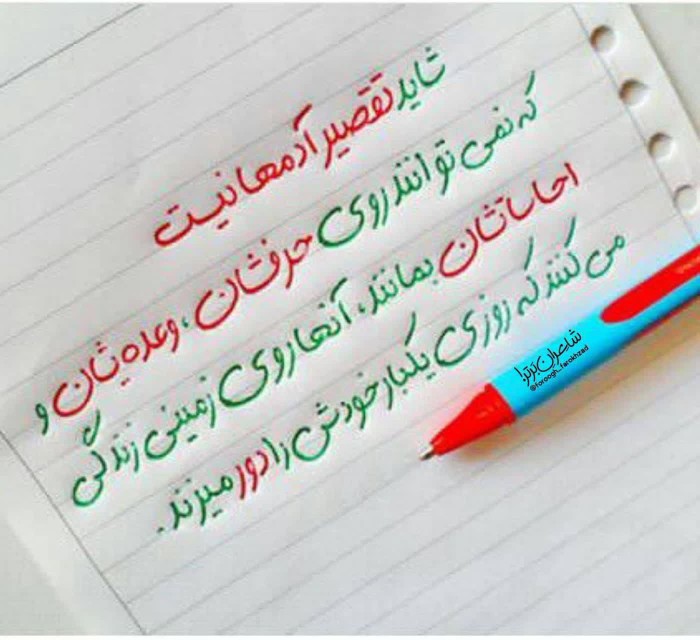 شاید تقصیر آدمها نیست
که نمی توانند روی حرفشان، وعده یشان و
احساساتشان بمانند، آنها روی زمینی زندگی
می کنند که روزی یکبار خودش را دور میزند.
شاعران برتر!
@foroogh_farokhzad